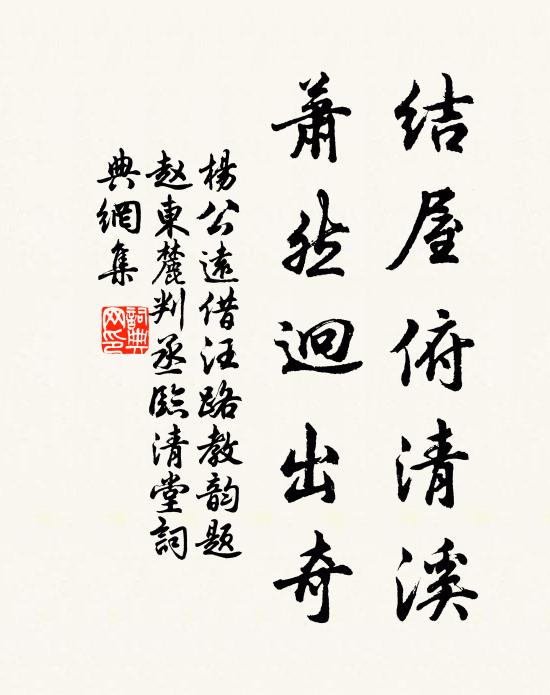 结屋俯清溪
萧然迥出奇
杨公远借汪路教韵题
赵東麓判丞臨清堂詞
典網集
詞典
网印